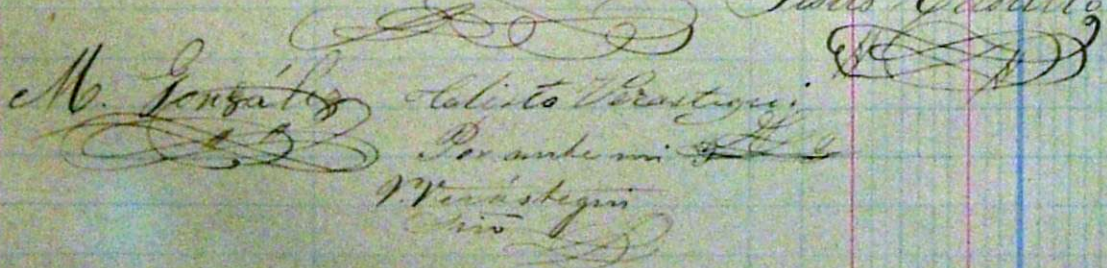 M. González Calisto Verastegui
Por ante mi
V. Verástegui
Srio